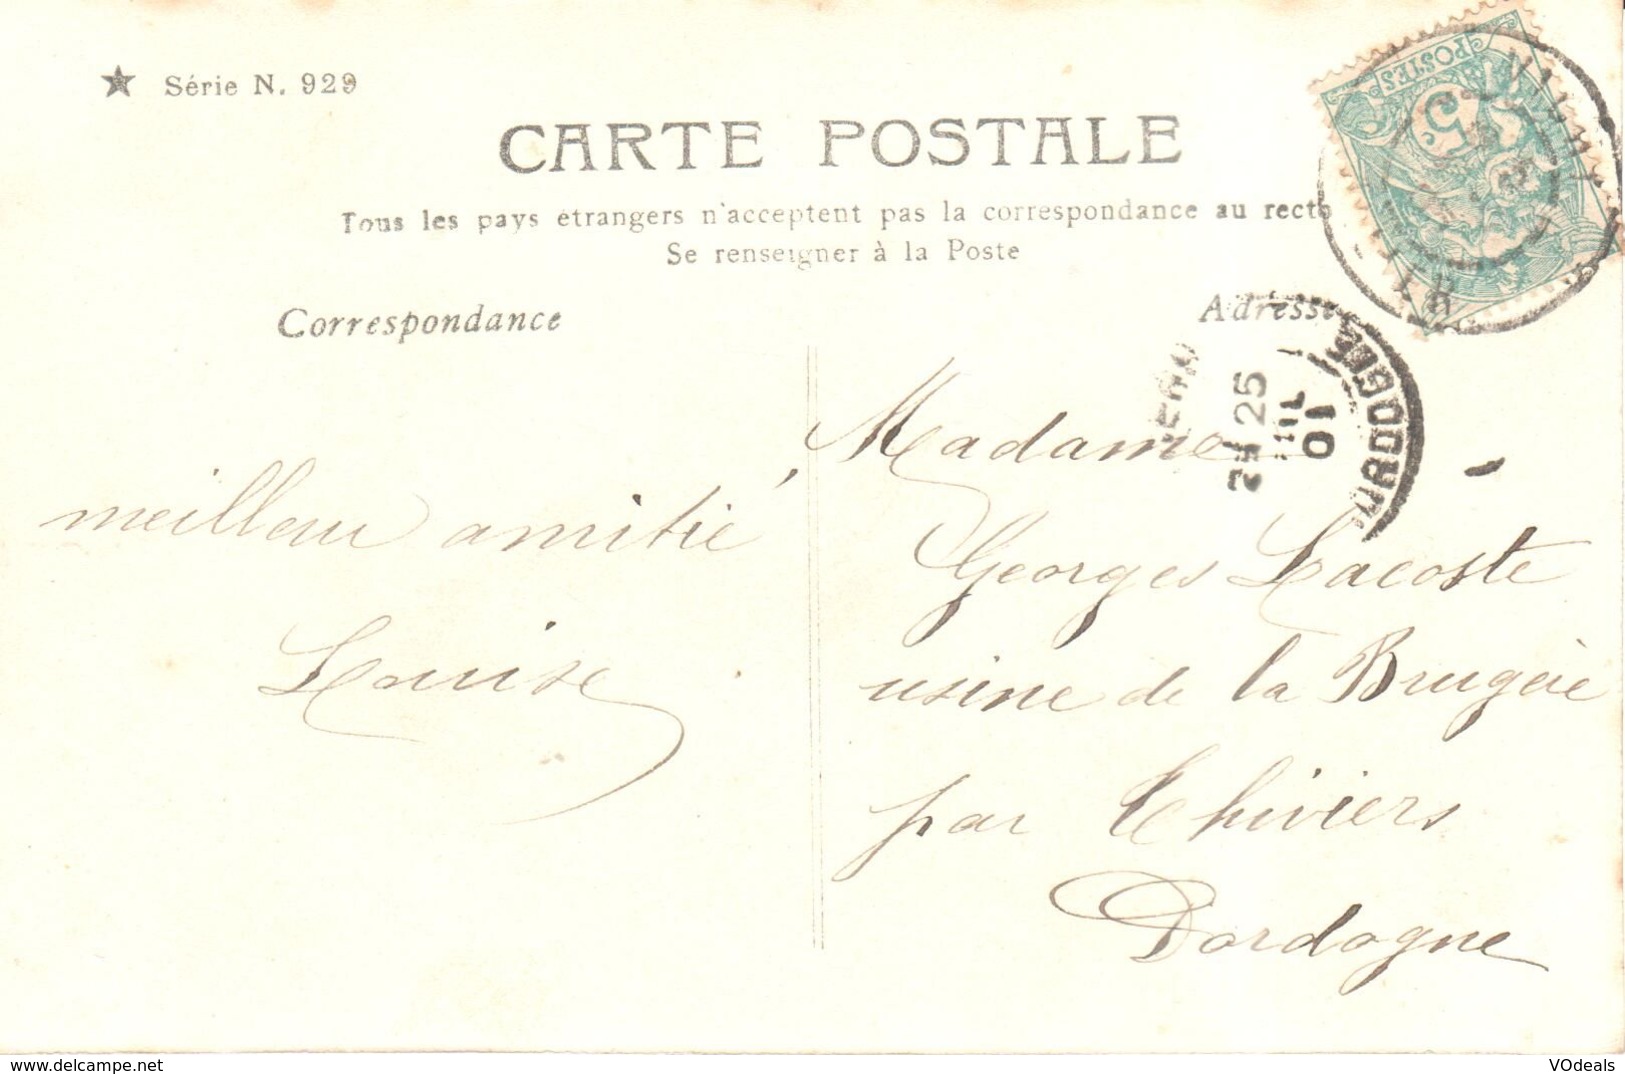 ★ Série N. 929
CARTE POSTALE
Tous les pays étrangers n'acceptent pas la correspondance au recto
Se renseigner à la Poste
Correspondance
Adresse
POSTES
5c
25
JUIL
01
DORDOGNE
meilleur amitié
Louise
Madame
Georges Lacoste
usine de la Brugère
par Thiviers
Dordogne
VOdeals